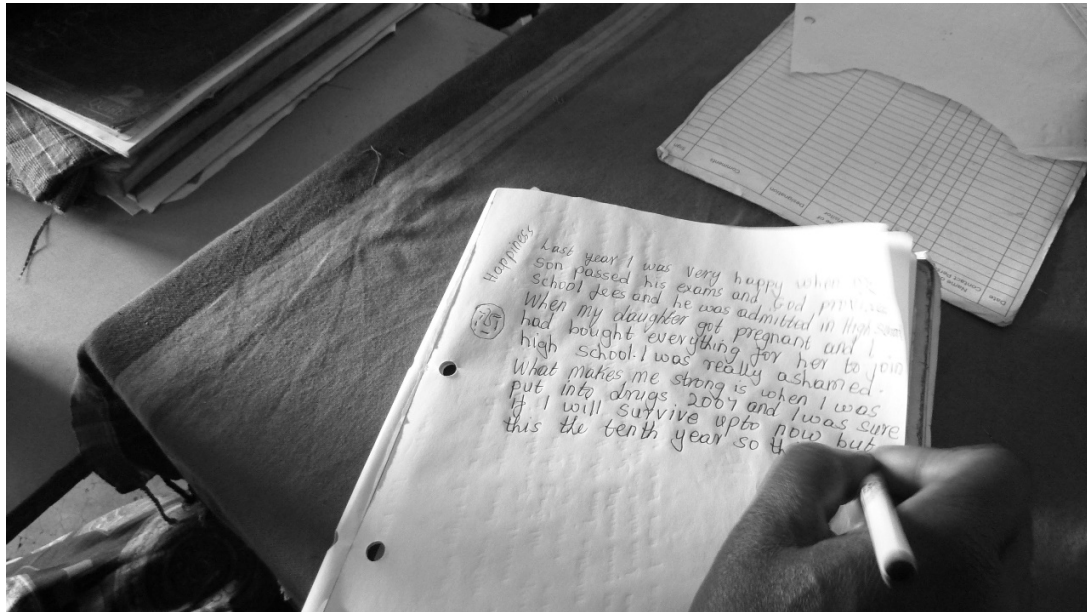 Happiness
Last year I was very happy when my
son passed his exams and God provided
school fees and he was admitted in High
When my daughter got pregnant and I
had bought everything for her to join
high school. I was really ashamed.
What makes me strong is when I was
put into drugs 2007 and I was sure
if I will survive upto now but
this the tenth year so
Date
Contact
Name
Designation
Comments